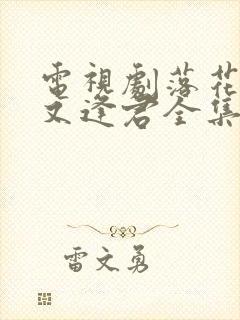 電視劇落花
又逢君全集
雷文勇